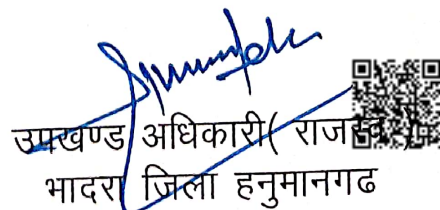 उपखण्ड अधिकारी( राजस्व )
भादरा जिला हनुमानगढ